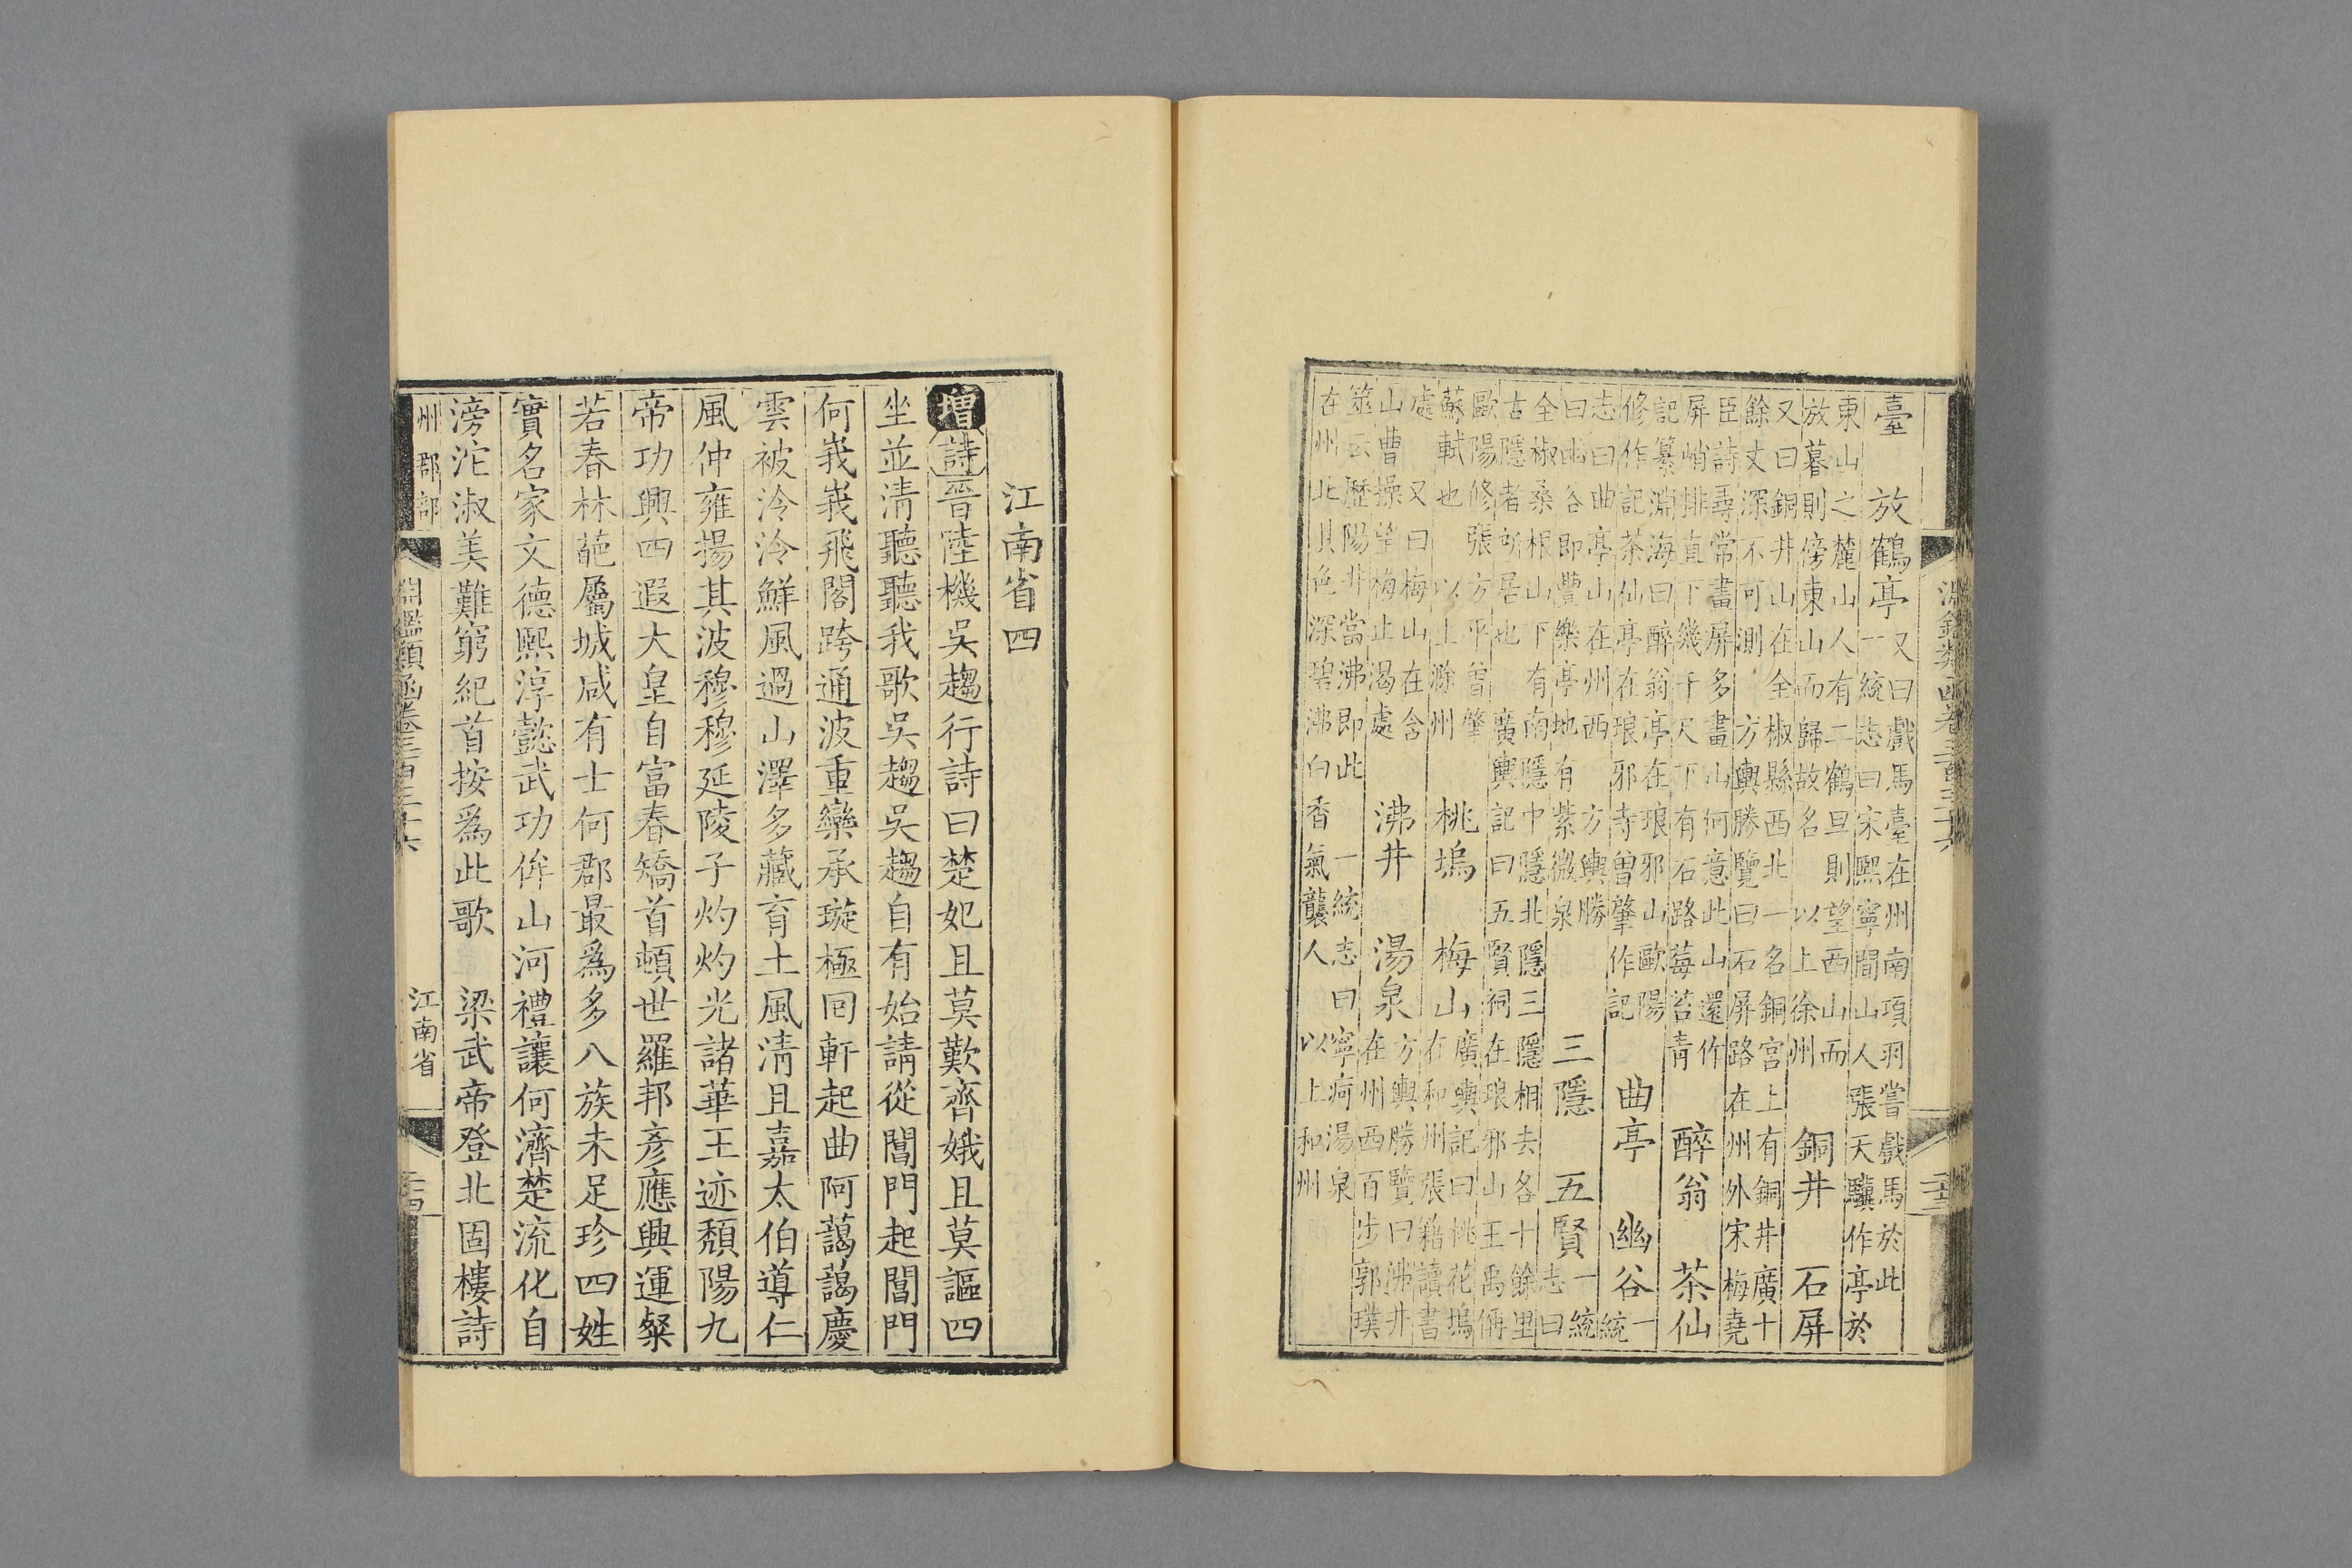 臺　放鶴亭
又曰戲馬臺在州南項羽嘗戲馬於此
一統志曰宋熙寧間山人張天驥作亭於
東山之麓山人有二鶴旦則望西山而
放暮則傍東山而歸故名　以上徐州
銅井　石屏
又曰銅井山在全椒縣西北一名銅宮上有銅井廣十
餘丈深不可測　方輿勝覽曰石屏路在州外宋梅堯
臣詩尋常畫屏多畫山何意此山還作
屏峭排直下幾千尺下有石路莓苔青
醉翁　茶仙
記纂淵海曰醉翁亭在琅邪山歐陽
修作記茶仙亭在琅邪寺曾肇作記
曲亭　幽谷
一
統
志曰曲亭山在州西　方輿勝
曰幽谷即豐樂亭地有紫微泉
三隱　五賢
一統
志曰
全椒桑根山下有南隱中隱北隱三隱相去各十餘里
古隱者所居也　廣輿記曰五賢祠在琅邪山王禹偁
歐陽修張方平曾肇
蘇軾也　以上滁州
桃塢　梅山
廣輿記曰桃花塢
在和州張籍讀書
處　又曰梅山在含
山曹操望梅止渴處
沸井　湯泉
方輿勝覽曰沸井
在州西百步郭璞
筮云歷陽井當沸即此　一統志曰寧疴湯泉
在州北其色深碧沸白香氣襲人　以上和州
江南省四
增詩晉陸機吳趨行詩曰楚妃且莫歎齊娥且莫謳四
坐並淸聽聽我歌吳趨吳趨自有始請從閶門起閶門
何峩峩飛閣跨通波重欒承璇極囘軒起曲阿藹藹慶
雲被泠泠鮮風過山澤多藏育土風淸且嘉太伯導仁
風仲雍揚其波穆穆延陵子灼灼光諸華王迹頹陽九
帝功興四遐大皇自富春矯首頓世羅邦彥應興運粲
若春林葩屬城咸有士何郡最爲多八族未足珍四姓
實名家文德熙淳懿武功侔山河禮讓何濟楚流化自
滂沱淑美難窮紀首按爲此歌　梁武帝登北固樓詩
州郡部　淵鑑類函卷三百三十六　江南省